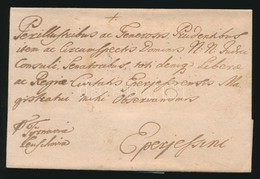 Perillustribus ac Generosis Prudentibus
item ac Circumspectis Dominis N.N. Judici
Consuli Senatoribus, toti deniq Liberae
ac Regiae Civitatis Eperjesiensis Ma
gistratui mihi Observandis
Eperjesini